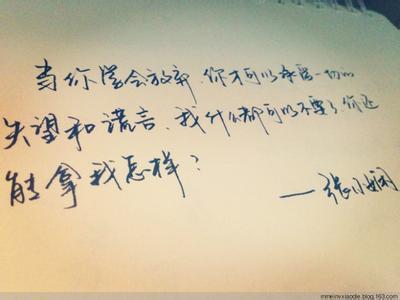 当你学会放弃、你才可以承受一切的
失望和谎言、我什么都可以不要了你还
能拿我怎样？
——张小娴
mineinvxiaodie.blog.163.com